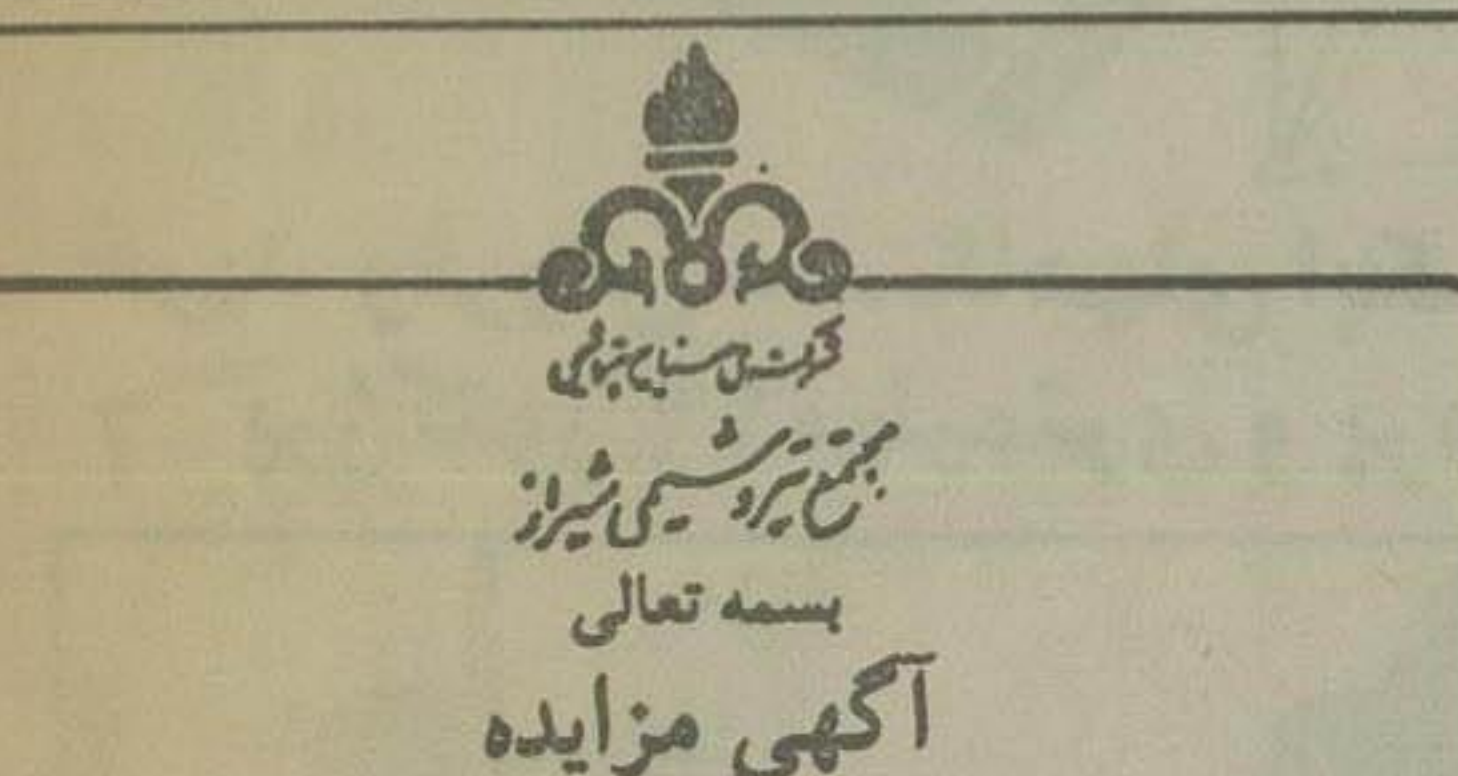 شرکت ملی صنایع پتروشیمی
مجتمع پتروشیمی شیراز
بسمه تعالی
آگهی مزایده